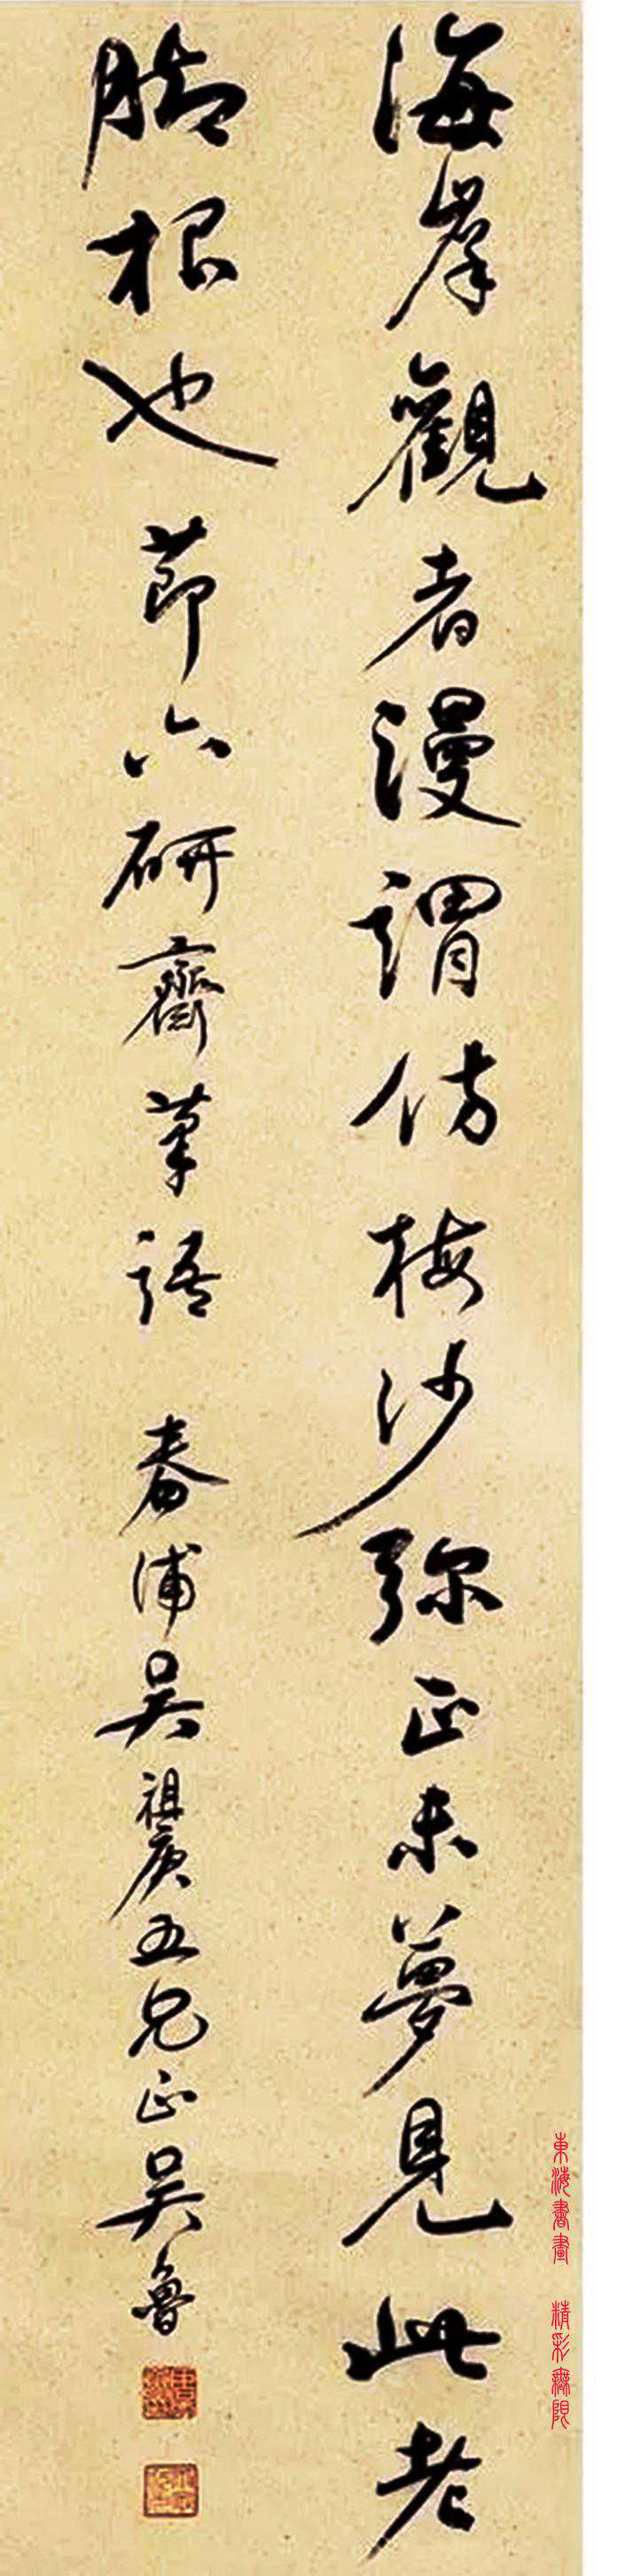 海岸觀者漫謂仿梅沙彌正未夢見此老
腳根也 節六研齋筆語 春浦吳祖賡五兄正吳魯
東海書畫 精彩無限